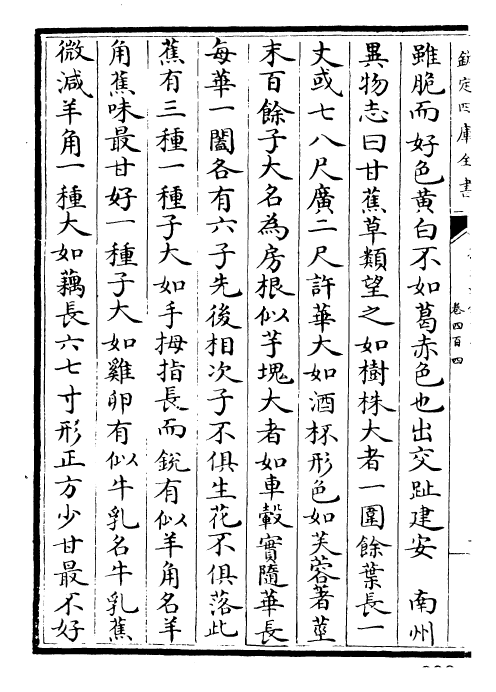 欽定四庫全書
卷四百四
雖脆而好色黄白不如葛赤色也出交趾建安　南州
異物志曰甘蕉草類望之如樹株大者一圍餘葉長一
丈或七八尺廣二尺許華大如酒杯形色如芙蓉著莖
末百餘子大名為房根似芋塊大者如車轂實隨華長
每華一闔各有六子先後相次子不俱生花不俱落此
蕉有三種一種子大如手拇指長而銳有似羊角名羊
角蕉味最甘好一種子大如雞卵有似牛乳名牛乳蕉
微減羊角一種大如藕長六七寸形正方少甘最不好